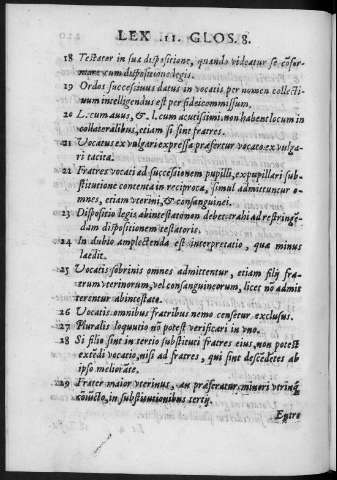 LEX .III. GLOS. 8.
18 Testater in sua dispositione, quando videatur se cōfor-
mare cum dispositione legis.
19 Ordo successiuus datus in vocatis per nomen collecti-
uum intelligendus est per fideicommissum.
20 L. cum auus, & l. cum acutissimi non habent locum in
collateralibus, etiam si sint fratres.
21 Vocatus ex vulgari expressa præfertur vocato ex vulga-
ri tacita.
22 Fratres vocati ad successionem pupilli, ex pupillari sub-
stitutione contenta in reciproca, simul admittuntur o-
mnes, etiam vterini, & consanguinei.
23 Dispositio legis ab intestato non debet trahi ad restringē-
dam dispositionem testatoris.
24 In dubio amplectenda est interpretatio, quæ minus
laedit.
25 Vocatis sobrinis omnes admittentur, etiam filij fra-
trum vterinorum, vel consanguineorum, licet nō admit
terentur ab intestato.
26 Vocatis omnibus fratribus nemo censetur exclusus.
27 Pluralis loquutio nō potest verificari in vno.
28 Si filio sint in tertio substituti fratres eius, non potest
extēdi vocatio, nisi ad fratres, qui sint descēdētes ab
ipso meliorāte.
29 Frater maior vterinus, an præferatur minori vtrinq̃
cōiūcto, in substitutionibus tertij.
Extre